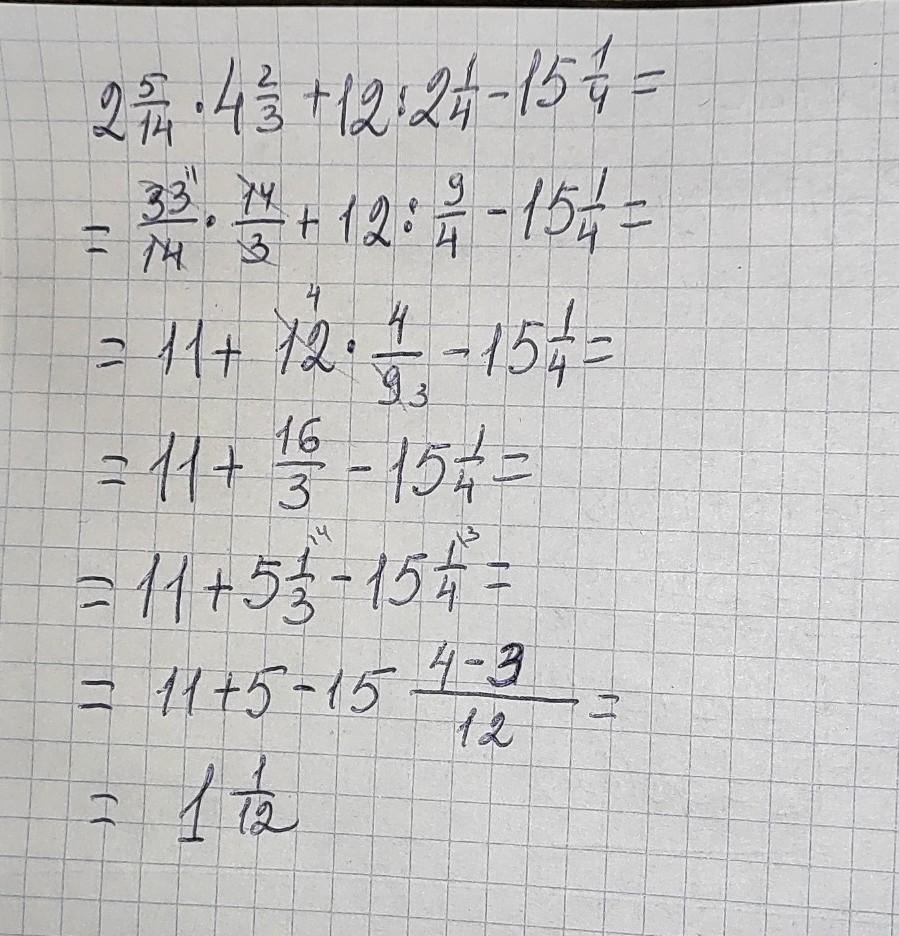 2 5/14 · 4 2/3 + 12 : 2 1/4 - 15 1/4 =
= 33/14 11 · 14/3 + 12 : 9/4 - 15 1/4 =
= 11 + 12 4 · 4/9 3 - 15 1/4 =
= 11 + 16/3 - 15 1/4 =
= 11 + 5 1/3 \4 - 15 1/4 \3 =
= 11 + 5 - 15 (4-3)/12 =
= 1 1/12